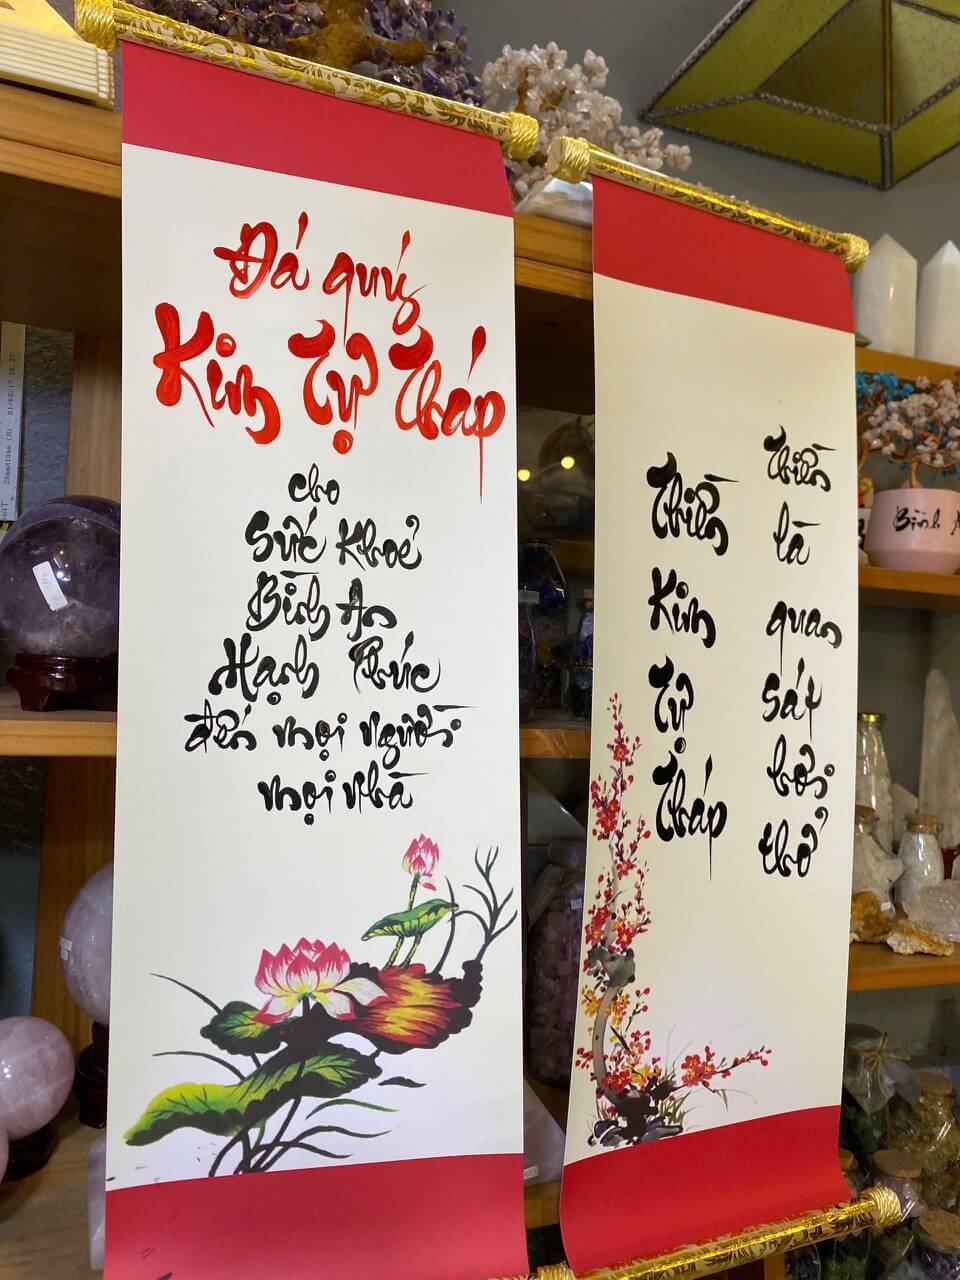 Đá quý
Kim Tự Tháp
cho
Sức Khoẻ
Bình An
Hạnh Phúc
đến mọi người
mọi nhà
Thiền
Kim
Tự
Tháp
Thiền
là
quan
sát
hơi
thở
Bình
01/06/17 16:37